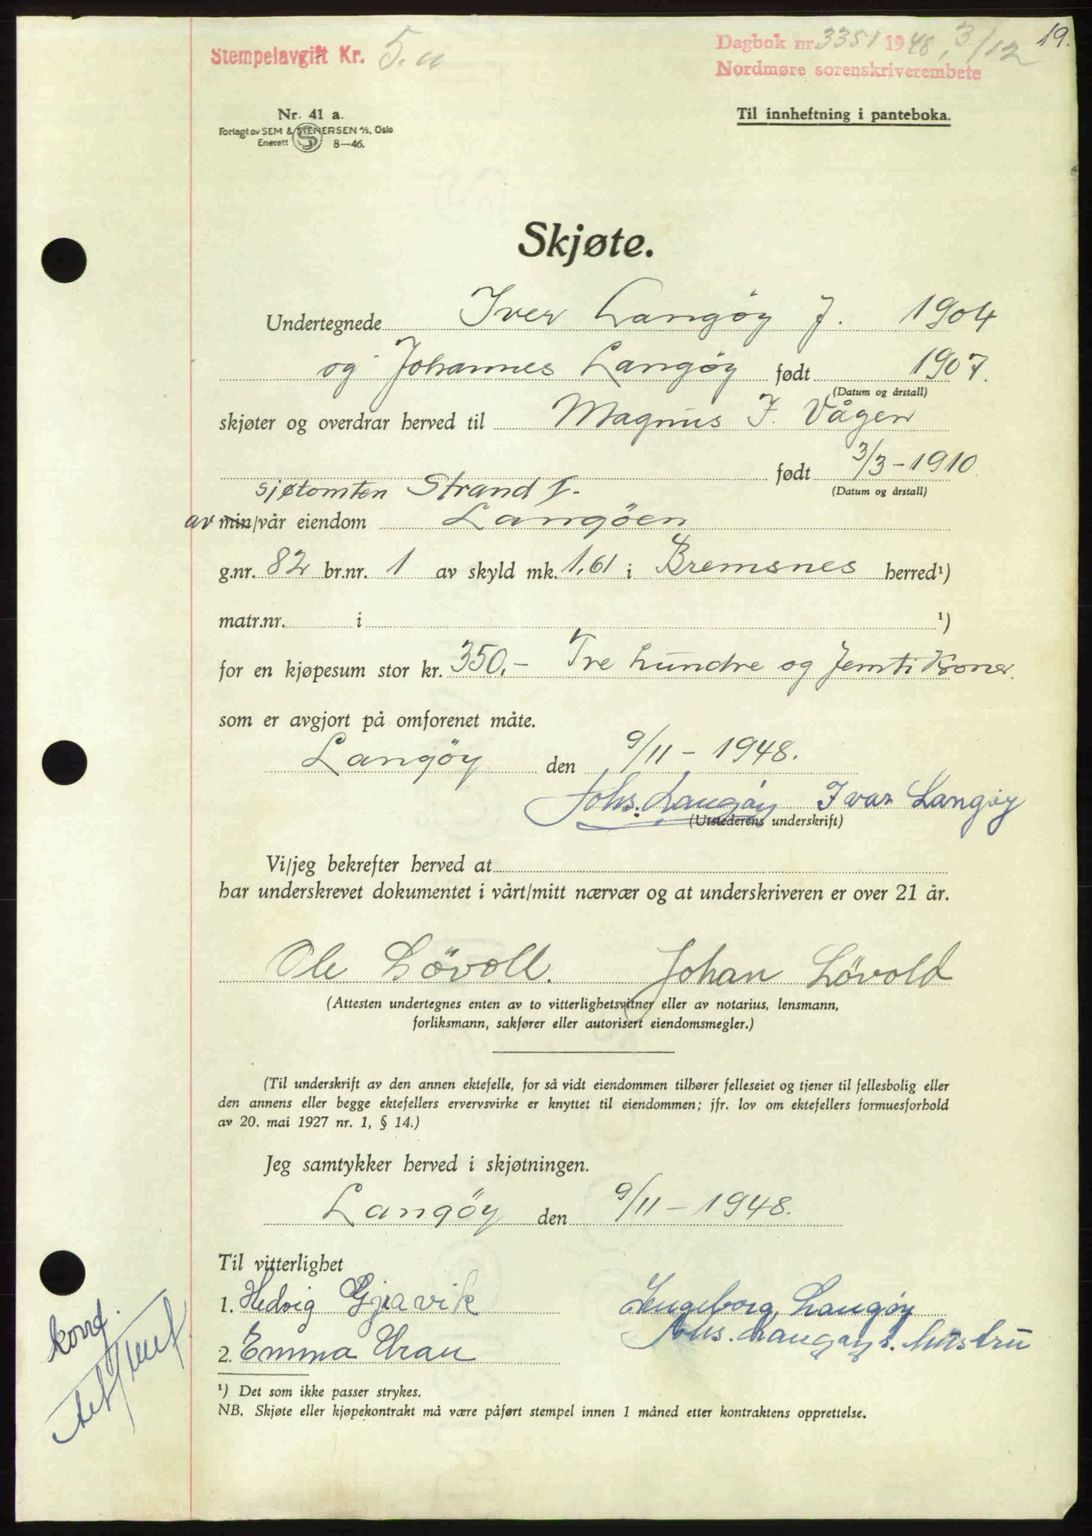 Stempelavgift Kr. 5.
Dagbok nr. 3351 1948, 3/12
19.
Nordmøre sorenskriverembete
Nr. 41 a.
Forlagt av SEM & STENERSEN A/S, Oslo
Enerett 8—46.
Til innheftning i panteboka.
Skjøte.
Undertegnede Iver Langøy J. 1904
og Johannes Langøy født 1907.
(Datum og årstall)
skjøter og overdrar herved til Magnus J. Vågen
født 3/3-1910
(Datum og årstall)
sjøtomten Strand I.
av min/vår eiendom Langöen
g.nr. 82 br.nr. 1 av skyld mk. 1,61 i Bremsnes herred¹)
matr.nr. i ¹)
for en kjøpesum stor kr. 350,- Tre hundre og femti Kroner.
som er avgjort på omforenet måte.
Langöy den 9/11-1948.
Johs. Langöy Ivar Langøy
(Utstederens underskrift)
Vi/jeg bekrefter herved at
har underskrevet dokumentet i vårt/mitt nærvær og at underskriveren er over 21 år.
Ole Lövoll. Johan Lövold
(Attesten undertegnes enten av to vitterlighetsvitner eller av notarius, lensmann,
forliksmann, sakfører eller autorisert eiendomsmegler.)
(Til underskrift av den annen ektefelle, for så vidt eiendommen tilhører felleseiet og tjener til fellesbolig eller
den annens eller begge ektefellers ervervsvirke er knyttet til eiendommen; jfr. lov om ektefellers formuesforhold
av 20. mai 1927 nr. 1, § 14.)
Jeg samtykker herved i skjøtningen.
Langöy den 9/11-1948.
Til vitterlighet
1. Hedvig Gjøvik
Ingeborg Langöy
Johs. Langöys hustru
2. Emma
¹) Det som ikke passer strykes.
NB. Skjøte eller kjøpekontrakt må være påført stempel innen 1 måned etter kontraktens opprettelse.
konf.